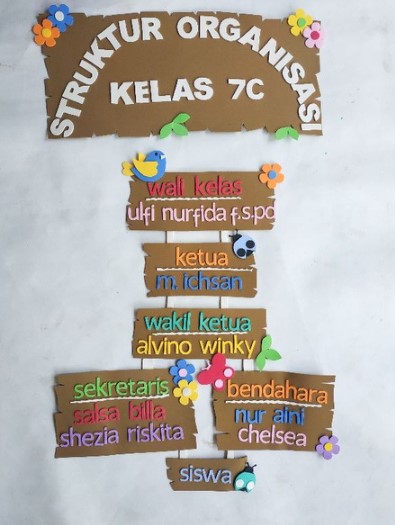 STRUKTUR ORGANISASI
KELAS 7C
wali kelas
ulfi nurfida f.s.pd
ketua
m. ichsan
wakil ketua
alvino winky
sekretaris
salsa billa
shezia riskita
bendahara
nur aini
chelsea
siswa